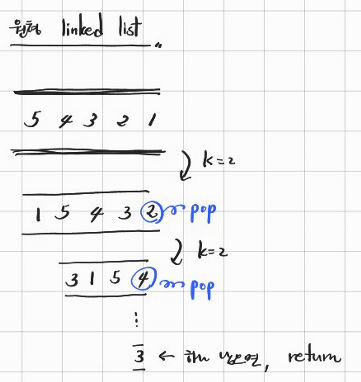 원형 linked list
5 4 3 2 1
k=2
1 5 4 3 2 pop
k=2
3 1 5 4 pop
⋮
3 ← 하나 남으면, return